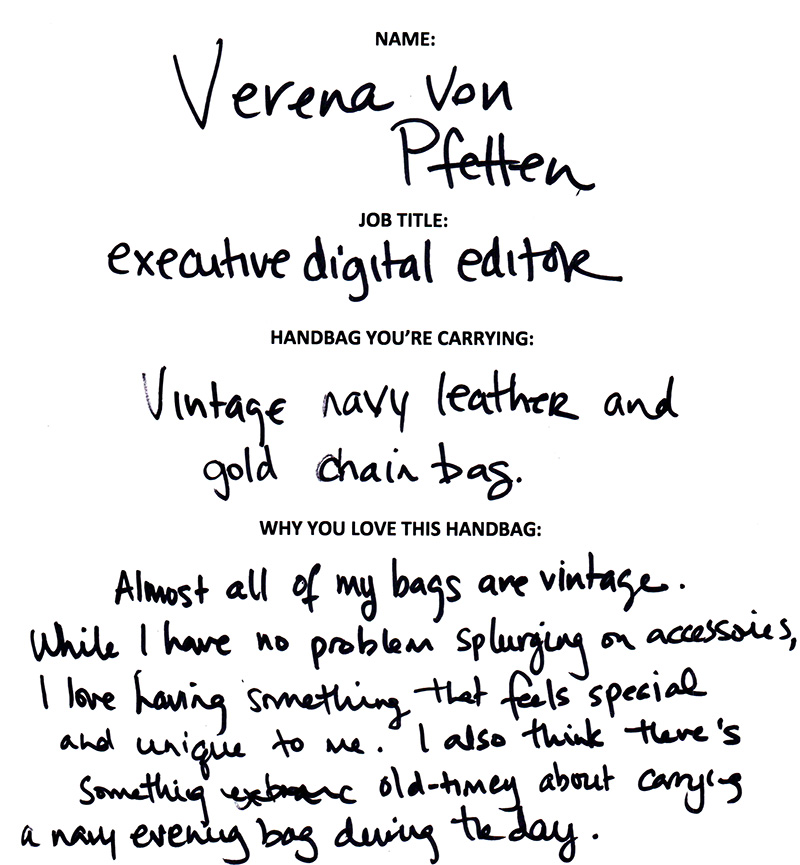 NAME:
Verena von
Pfetten
JOB TITLE:
executive digital editor
HANDBAG YOU'RE CARRYING:
Vintage navy leather and
gold chain bag.
WHY YOU LOVE THIS HANDBAG:
Almost all of my bags are vintage.
While I have no problem splurging on accessories,
I love having something that feels special
and unique to me. I also think there's
something old-timey about carrying
a navy evening bag during the day.